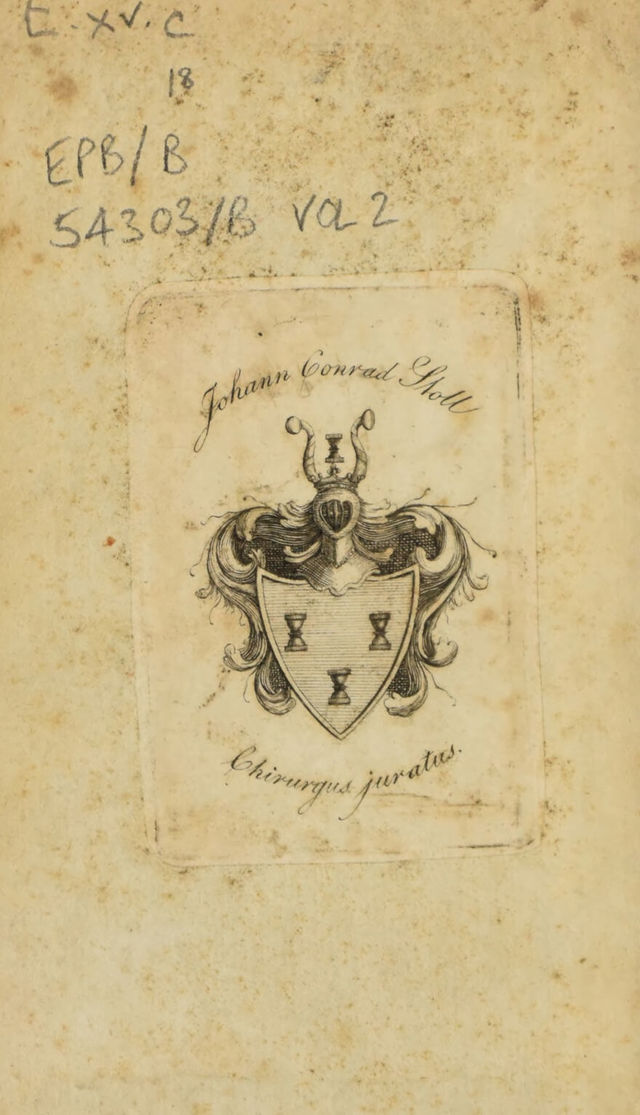 E. xv. c
18
EPB/B
54303/B VOL 2
Johann Conrad Stoll
Chirurgus juratus.